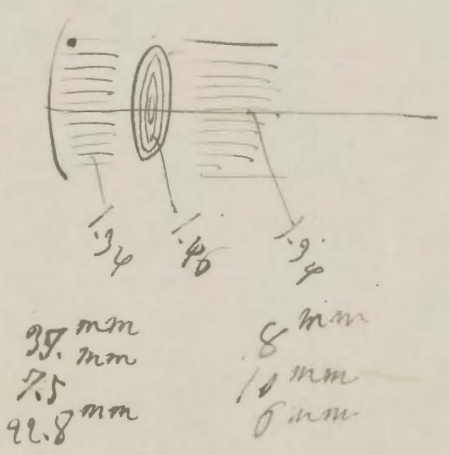 1.34
1.46
1.34
mm
7.5 mm
mm
8 mm
10 mm
6 mm